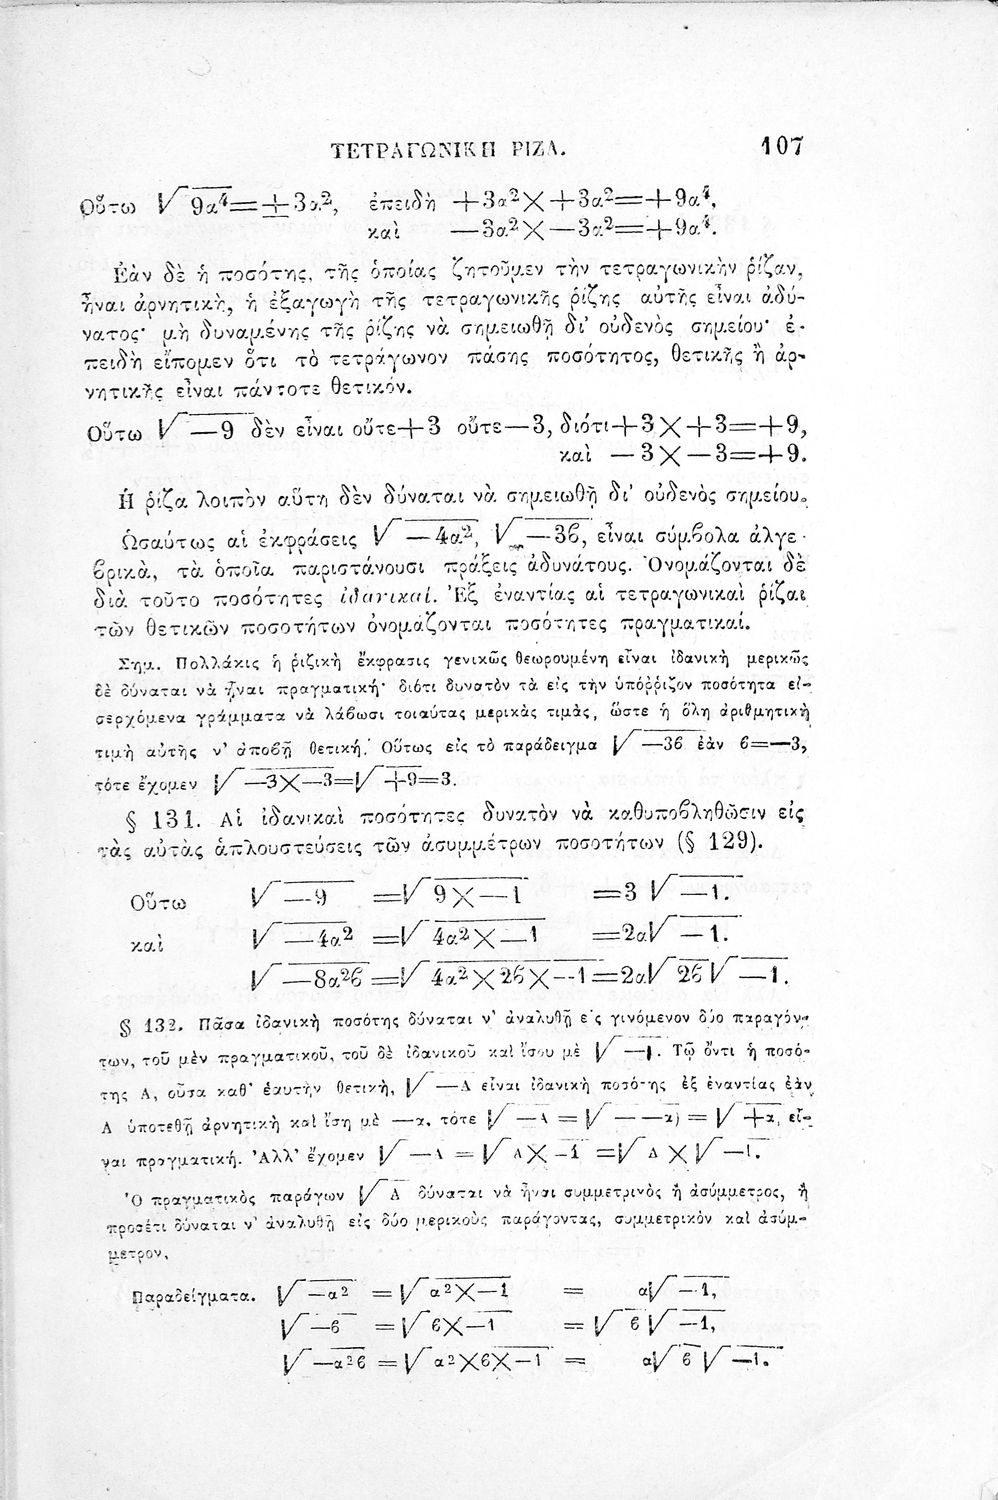 ΤΕΤΡΑΓΩΝΙΚΗ ΡΙΖΑ. 107
Οὕτω √9α⁴=±3α², ἐπειδὴ +3α²×+3α²=+9α⁴,
καὶ —3α²×—3α²=+9α⁴.
Ἐὰν δὲ ἡ ποσότης, τῆς ὁποίας ζητοῦμεν τὴν τετραγωνικὴν ῥίζαν,
ἦναι ἀρνητικὴ, ἡ ἐξαγωγὴ τῆς τετραγωνικῆς ῥίζης αὐτῆς εἶναι ἀδύ-
νατος· μὴ δυναμένης τῆς ῥίζης νὰ σημειωθῇ δι' οὐδενὸς σημείου· ἐ-
πειδὴ εἴπομεν ὅτι τὸ τετράγωνον πάσης ποσότητος, θετικῆς ἢ ἀρ-
νητικῆς εἶναι πάντοτε θετικόν.
Οὕτω √—9 δὲν εἶναι οὔτε+3 οὔτε—3, διότι+3×+3=+9,
καὶ —3×—3=+9.
Ἡ ῥίζα λοιπὸν αὕτη δὲν δύναται νὰ σημειωθῇ δι' οὐδενὸς σημείου.
Ὡσαύτως αἱ ἐκφράσεις √—4α², √—3ϐ, εἶναι σύμϐολα ἀλγε-
ϐρικὰ, τὰ ὁποῖα παριστάνουσι πράξεις ἀδυνάτους. Ὀνομάζονται δὲ
διὰ τοῦτο ποσότητες ἰδανικαί. Ἐξ ἐναντίας αἱ τετραγωνικαὶ ῥίζαι
τῶν θετικῶν ποσοτήτων ὀνομάζονται ποσότητες πραγματικαί.
Σημ. Πολλάκις ἡ ῥιζικὴ ἔκφρασις γενικῶς θεωρουμένη εἶναι ἰδανικὴ μερικῶς
δὲ δύναται νὰ ἦναι πραγματική· διότι δυνατὸν τὰ εἰς τὴν ὑπόῤῥιζον ποσότητα εἰ-
σερχόμενα γράμματα νὰ λάϐωσι τοιαύτας μερικὰς τιμὰς, ὥστε ἡ ὅλη ἀριθμητικὴ
τιμὴ αὐτῆς ν' ἀποϐῇ θετική. Οὕτως εἰς τὸ παράδειγμα √—3ϐ ἐὰν ϐ=—3,
τότε ἔχομεν √—3×—3=√+9=3.
§ 131. Αἱ ἰδανικαὶ ποσότητες δυνατὸν νὰ καθυποϐληθῶσιν εἰς
τὰς αὐτὰς ἁπλουστεύσεις τῶν ἀσυμμέτρων ποσοτήτων (§ 129).
Οὕτω √—9 =√9×—1 =3√—1.
καὶ √—4α² =√4α²×—1 =2α√—1.
√—8α²ϐ =√4α²×2ϐ×—1=2α√2ϐ√—1.
§ 132. Πᾶσα ἰδανικὴ ποσότης δύναται ν' ἀναλυθῇ εἰς γινόμενον δύο παραγόν-
των, τοῦ μὲν πραγματικοῦ, τοῦ δὲ ἰδανικοῦ καὶ ἴσου μὲ √—1. Τῷ ὄντι ἡ ποσό-
της Α, οὖσα καθ' ἑαυτὴν θετικὴ, √—Α εἶναι ἰδανικὴ ποσότης ἐξ ἐναντίας ἐὰν
Α ὑποτεθῇ ἀρνητικὴ καὶ ἴση μὲ —α, τότε √—Α = √— —α) = √+α, εἶ-
ναι πραγματική. Ἀλλ' ἔχομεν √—Α = √Α×—1 =√Α×√—1.
Ὁ πραγματικὸς παράγων √Α δύναται νὰ ἦναι συμμετρικὸς ἢ ἀσύμμετρος, ἢ
προσέτι δύναται ν' ἀναλυθῇ εἰς δύο μερικοὺς παράγοντας, συμμετρικὸν καὶ ἀσύμ-
μετρον.
Παραδείγματα. √—α² =√α²×—1 = α√—1,
√—ϐ =√ϐ×—1 =√ϐ√—1,
√—α²ϐ =√α²×ϐ×—1 = α√ϐ√—1.